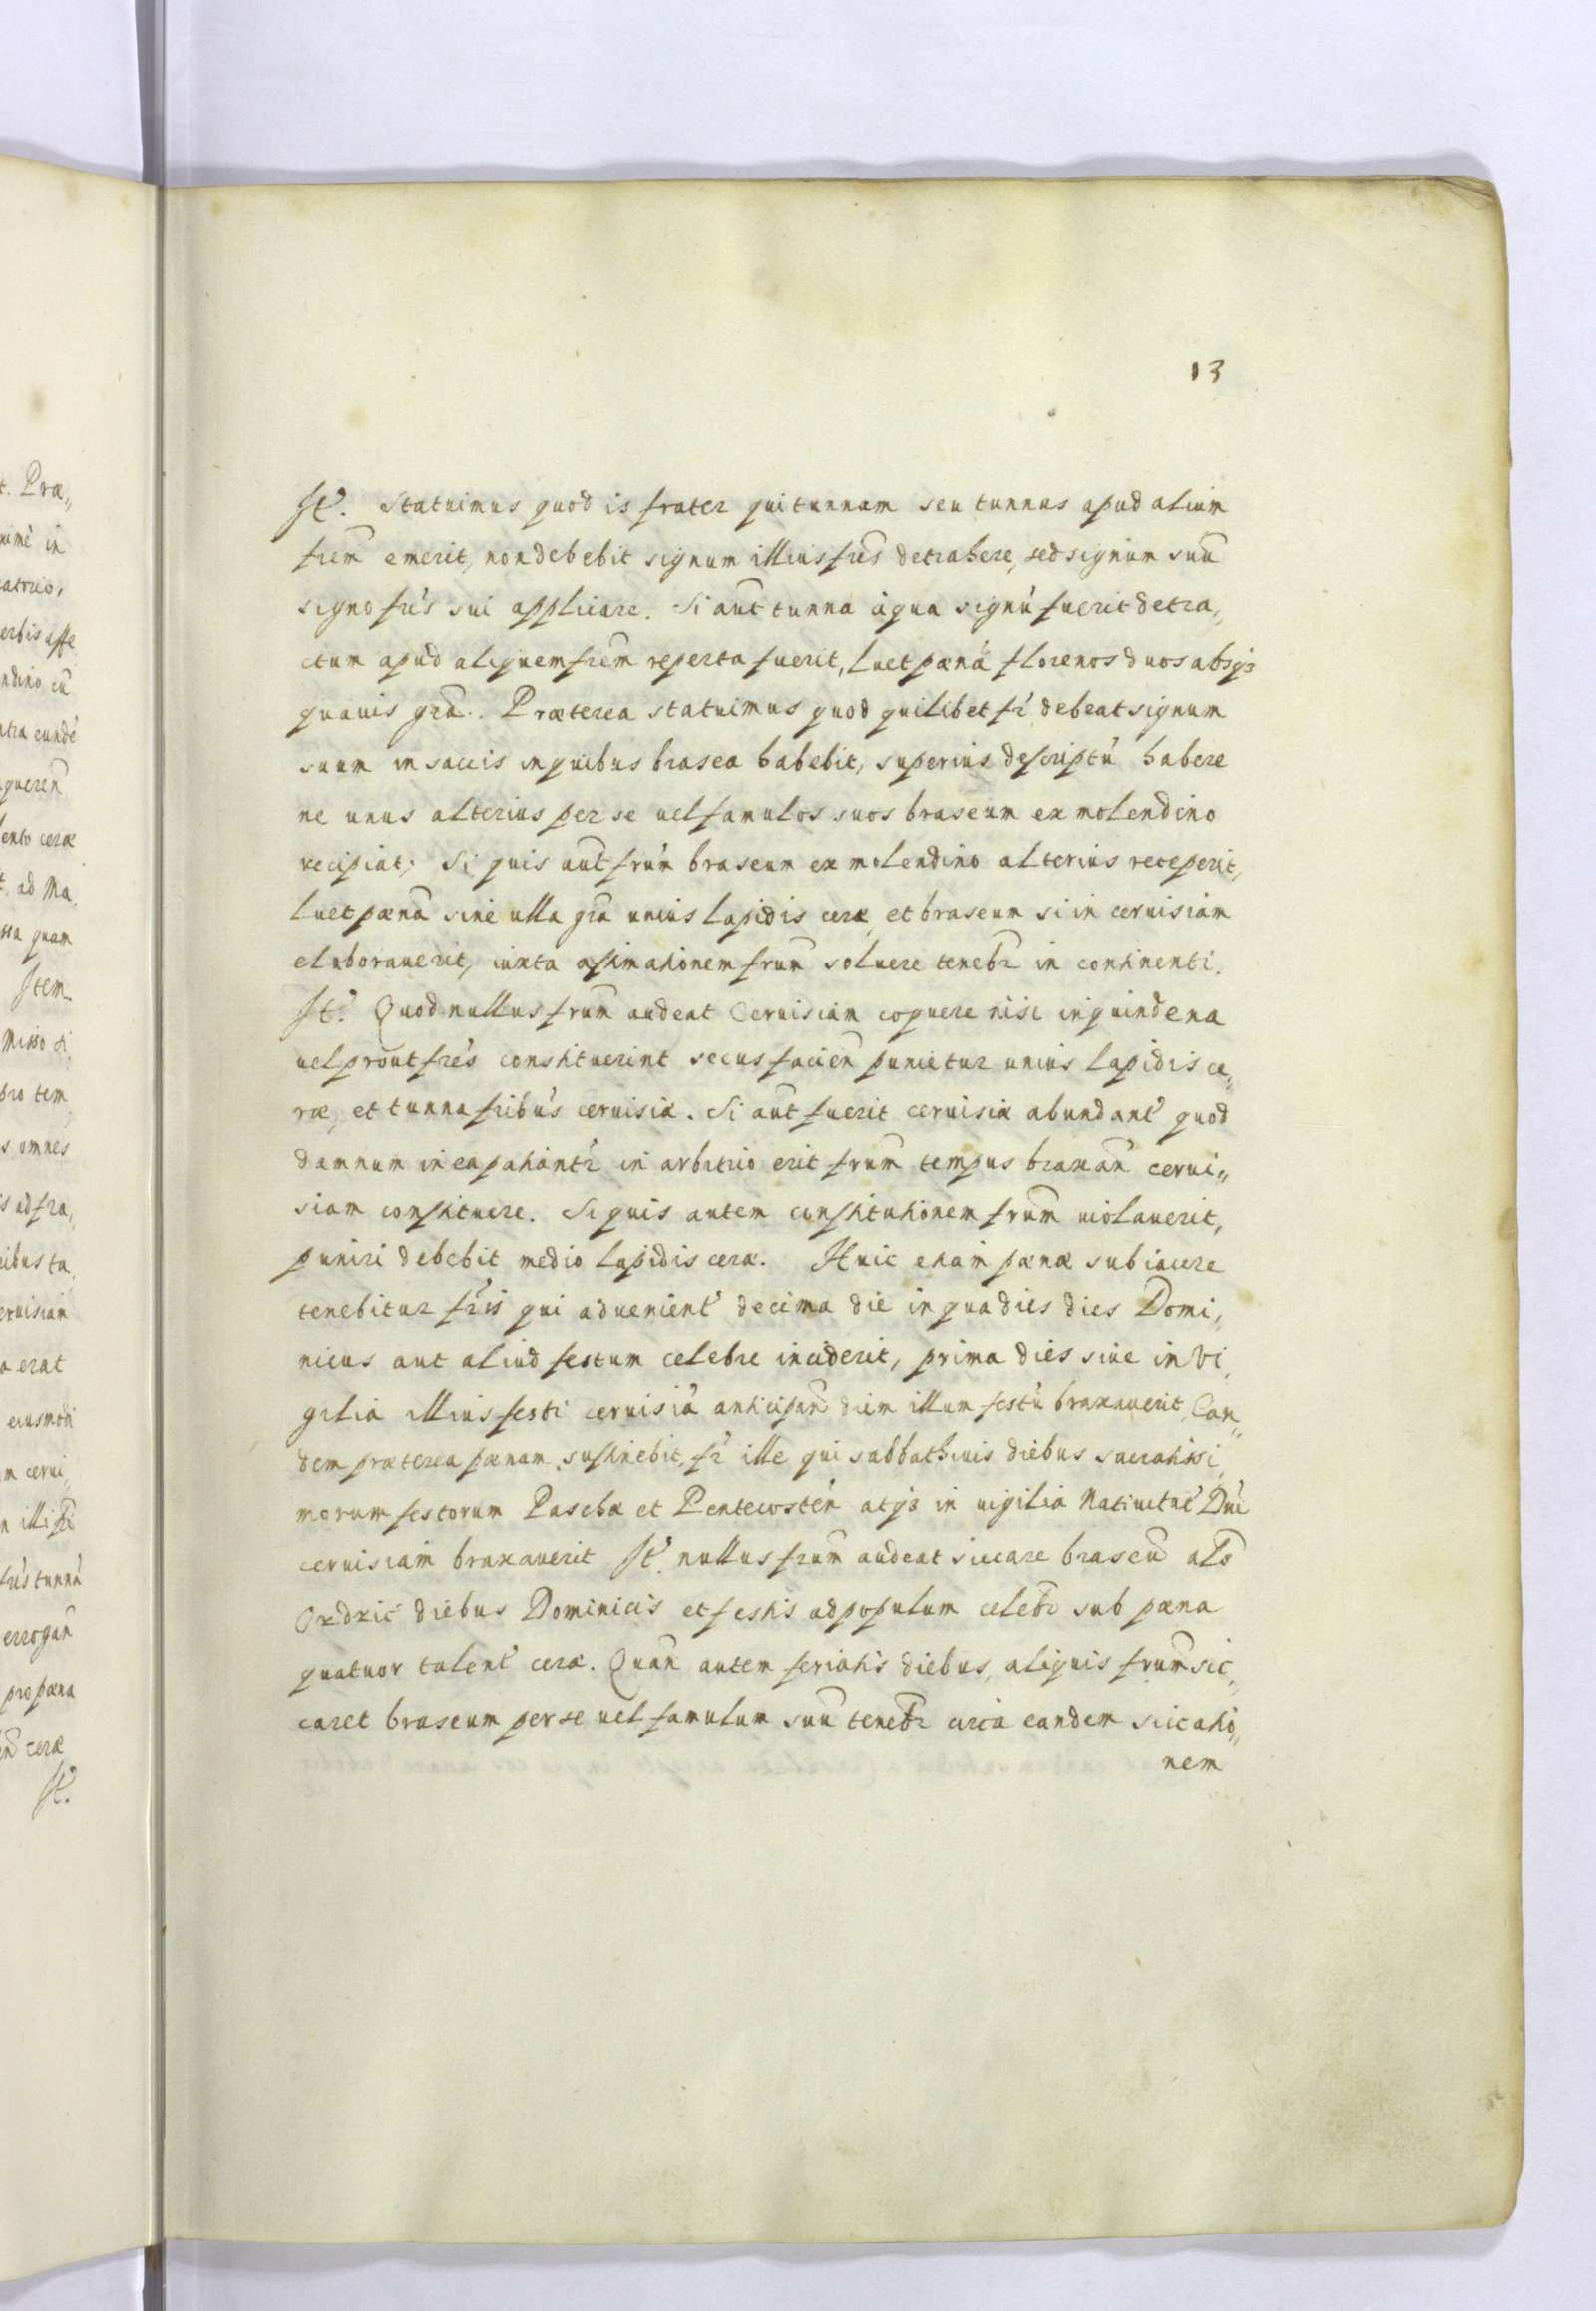 t. Præ„
nimè in
atrio,
erbis affe
ndino cū
ntra eundē
queren̄
ento ceræ
t. ad Ma
ssa quam
Item.
Misso si
pro tem
s omnes
s ad fra,
ribus ta
eruisian
a erat
eiusmodi
m cerui,
n illi fri
frīs tunnā
errogan̄
pro pæna
en̄ ceræ
It.
13
It. Statuimus quod is frater qui tunnam seu tunnas apud alium
frem̄ emerit, non debebit signum illius frīs detrahere, sed signum suū
signo frīs sui applicare. Si aut̄ tunna à qua signū fuerit detra„
ctum apud aliquem frem̄ reperta fuerit, luet pænā florenos duos absqꝫ
quauis grā. Præterea statuimus quod quilibet fr̄ debeat signum
suum in saccis in quibus brasea habebit, superius descriptū habere
ne unus alterius per se uel famulos suos braseum ex molendino
recipiat; Si quis aut̄ frūm braseum ex molendino alterius receperit,
luet pænā sine ulla grā unius lapidis ceræ, et braseum si in ceruisiam
elaborauerit, iuxta æstimationem frum̄ soluere tenebr̄ in continenti.
It. Quod nullus frum̄ audeat Ceruisiam coquere nisi in quindena
uel prout frēs constituerint secus facien̄ punietur unius lapidis ce„
ræ, et tunna fribūs ceruisiæ. Si aut̄ fuerit ceruisiæ abundant̄ quod
damnum in ea patiantr̄ in arbitrio erit frum̄ tempus braxan̄ cerui„
siam constituere. Si quis autem constitutionem frum̄ uiolauerit,
puniri debebit medio lapidis ceræ. Huic etiam pænæ subiacere
tenebitur fr̄ is qui aduenient̄ decima die in qua dies dies Domi,
nicus aut aliud festum celebre inciderit, prima dies siue in Vi,
gilia illius festi ceruisiā anticipan̄ diem illum festū braxauerit, Ean„
dem præterea pænam sustinebit, fr̄ ille qui sabbathiuis diebus sacratissi,
morum festorum Paschæ et Pentecosten̄ atqꝫ in uigilia Natiuitat̄ Dn̄i
ceruisiam braxauerit It. nullus frum̄ audeat siccare braseū als̄
Ozdzić diebus Dominicis et festis ad populum celebr̄ sub pæna
quatuor talent̄ ceræ. Quan̄ autem feriatis diebus, aliquis frum̄ sic„
caret braseum per se uel famulum suū tenebr̄ circa eandem siccatio„
nem